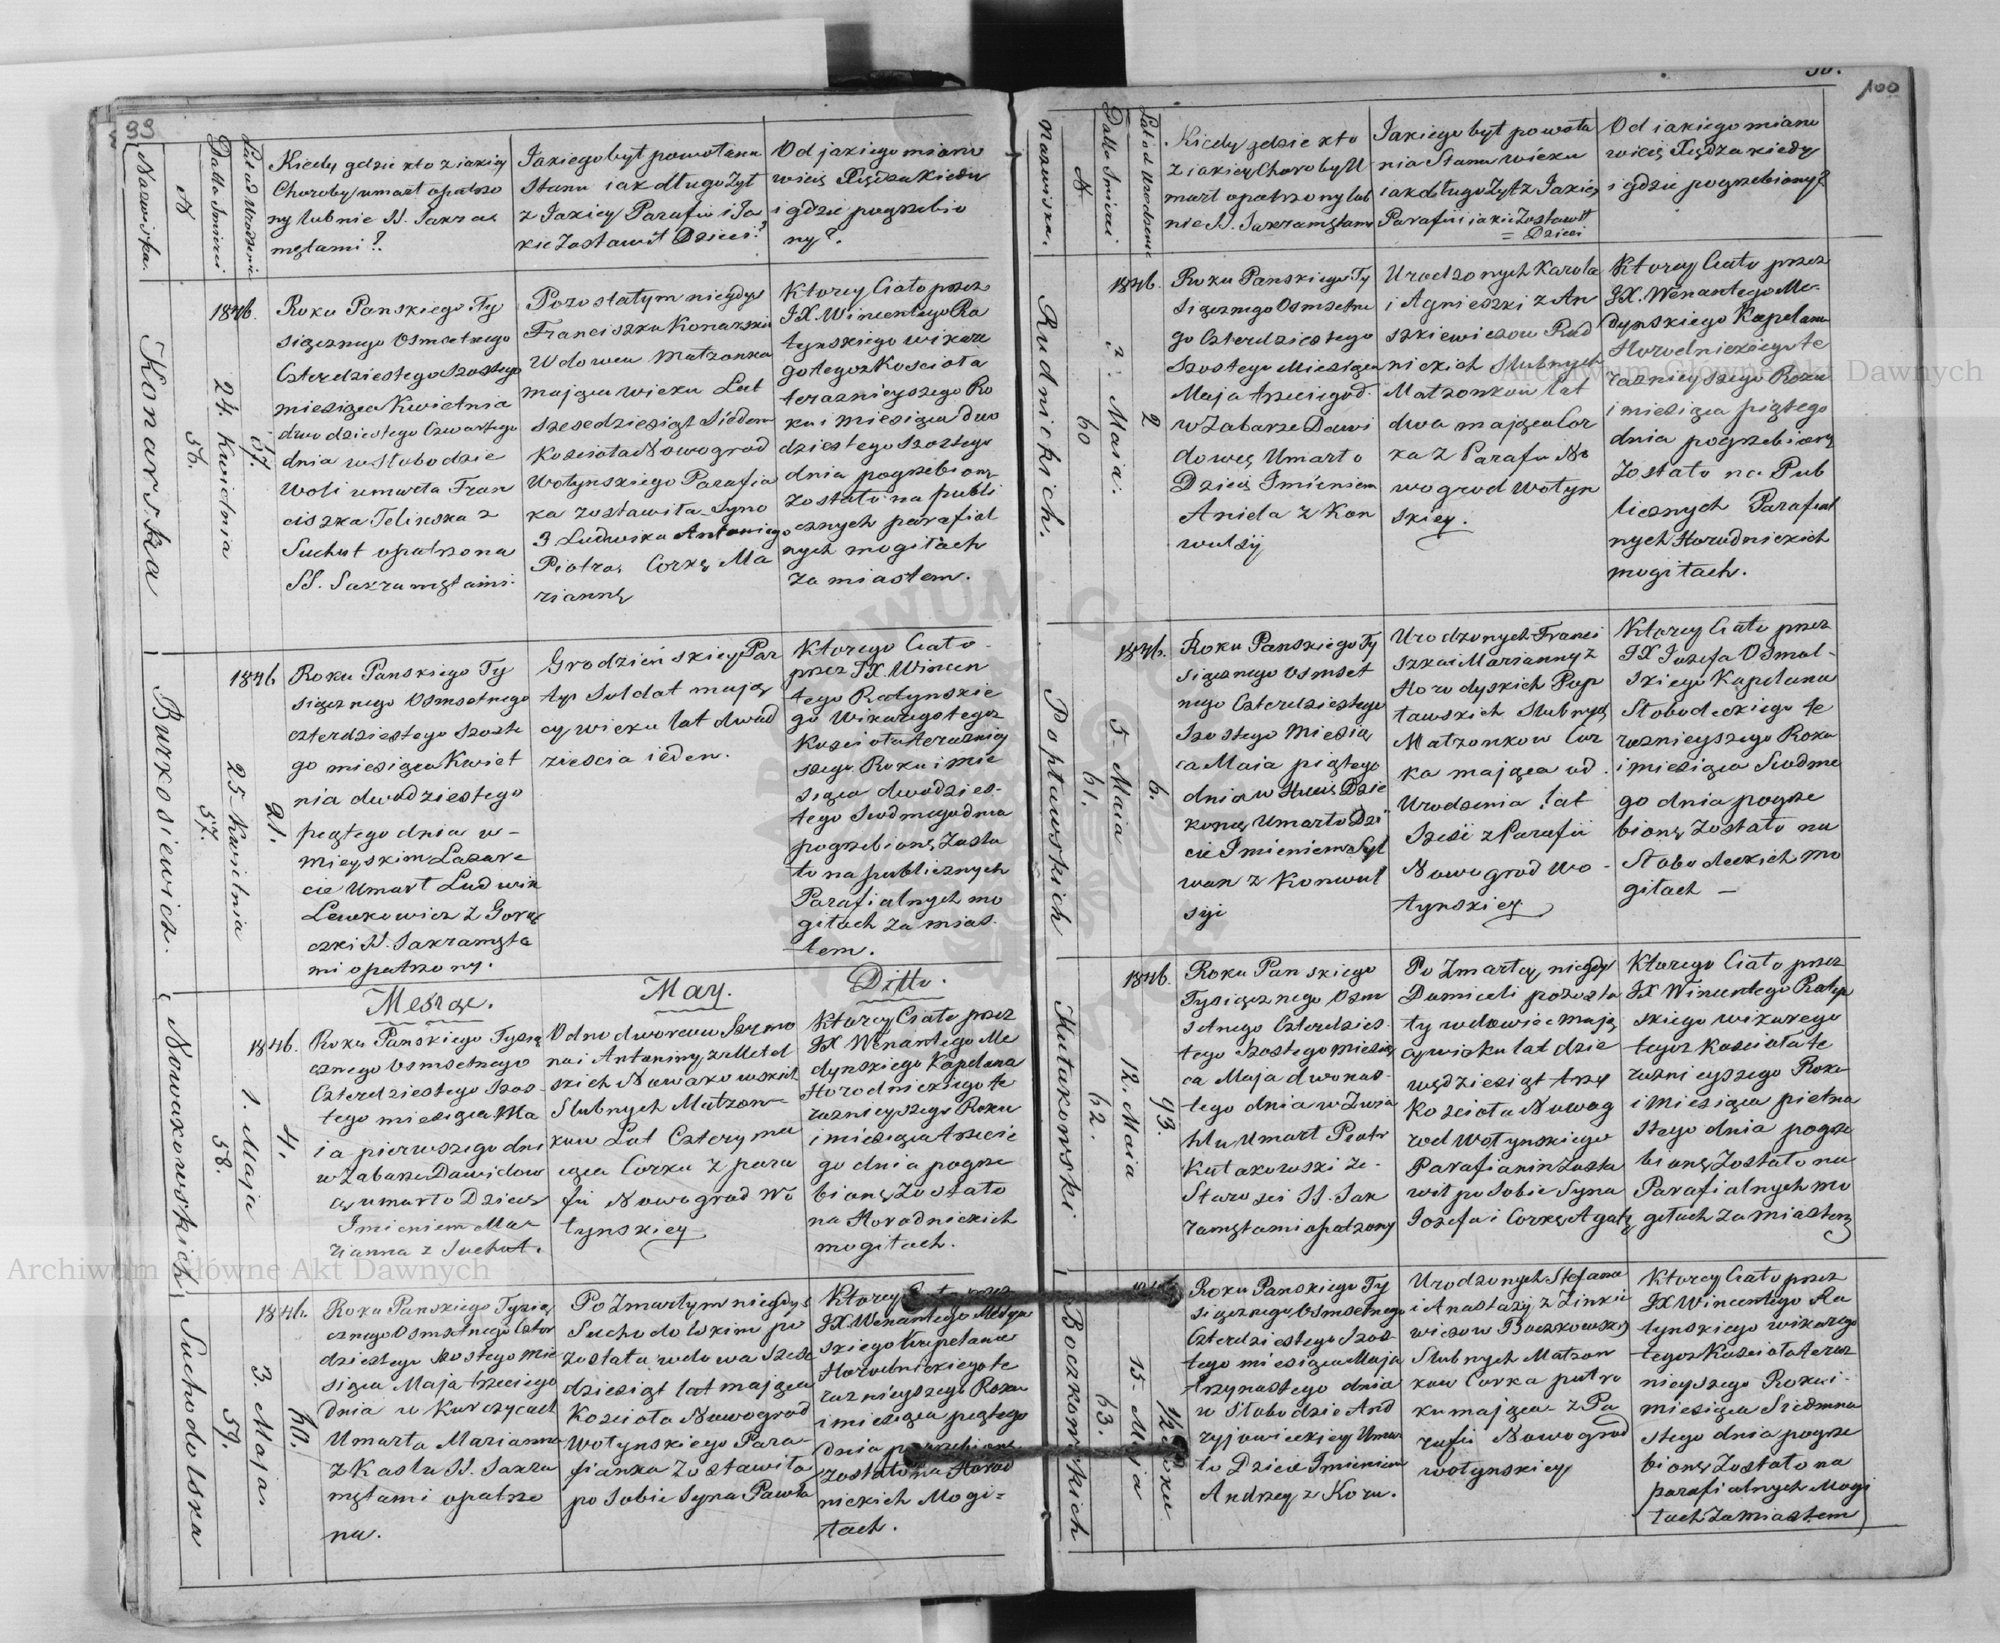 99
Nazwiska.
N
Datta Smierci
Lat od Urodzenia
Kiedy gdzie kto z jakiey
Choroby umarł opatrzo
ny lub nie SS. Sakra
mętami?
Jakiego był powołania
Stanu iak długo Żył
z Jakiey Parafii i Ja
kie Zostawił Dzieci?
Od jakiego miano
wicie Xiędza kiedy
i gdzie pogrzebio
ny?
Konarska
56.
1846.
24. Kwietnia
67.
Roku Panskiego Ty
siącznego Osmsetnego
Czterdziestego Szostego
miesiąca Kwietnia
dwudziestego Czwartego
dnia w Słobodzie
Woli umarła Fran
ciszka
Suchot opatrzona
SS. Sakramętami.
Pozostałym niegdyś
Franciszku Konarskim
Wdowa Małzonka
mająca wieku Lat
szescdziesiąt Siedem
Koscioła Nowogrod
Wołynskiego Parafia
ka zostawiła Syno
3 Ludwika Antoniego
Piotra, Corkę Ma
riannę
Ktorey Ciało przez
JX. Wincentego Ra
tynskiego wikare
go tegoz Koscioła
teraznieyszego Ro
ku i miesiąca dwu
dziestego szostego
dnia pogrzebione
zostało na publi
cznych parafial
nych mogiłach
za miastem.
Burkosiewicz.
57.
1846
25. Kwietnia
21.
Roku Panskiego Ty
siącznego Osmsetnego
czterdziestego szoste
go miesiąca Kwiet
nia dwudziestego
piątego dnia w
Mieyskim Lazare
cie Umarł Ludwik
Lewkowicz z Gorą
czki SS. Sakramęta
mi opatrzony.
Grodzień skiey Par
tyi Soldat mają
cy wieku lat dwad
ziescia ieden.
Ktorego Ciało
przez JX. Wincen
tego Ratynskie
go Wikarego tegoz
Koscioła terazniey
szego Roku i mie
siąca dwudzies
tego Siodmego dnia
pogrzebione Zosta
ło na publicznych
Parafialnych mo
giłach za mias
tem.
Mesiąc.
May.
Ditto.
Nowakowskich
58.
1846.
1. Maja
4.
Roku Panskiego Tysią
cznego Osmsetnego
Czterdziestego Szos
tego miesiąca Ma
ia pierwszego dni
w Zabarze Dawidow
cey umarło Dziecę
Imieniem Ma
rianna z Suchot.
Odnodworcow Szymo
na i Antoniny z Metel
skich Nowakowskich
Slubnych Małzon
kow Lat Cztery ma
iąca Corka z para
fii Nowogrod Wo
łynskiey
Ktorey Ciało przez
JX Wenantego Me
dynskiego Kapelana
Horodnickiego te
raznieyszego Roku
i miesiąca trzecie
go dnia pogrze
bione Zostało
na Horodnickich
mogiłach.
Suchodolska
59.
1846.
3. Maja.
60.
Roku Panskiego Tysią
cznego Osmsetnego Czter
dziestego Szostego mie
siąca Maja trzeciego
dnia w Kurczycach
Umarła Marianna
z Kaslu SS. Sakra
mętami opatrzo
na.
Po Zmarłym niegdyś
Suchodolskim po
została wdowa Szesc
dziesiąt lat mająca
Koscioła Nowogrod
Wołynskiego Para
fianka Zostawiła
po Sobie Syna Pawła
Ktorey
JX. Wenantego Medyn
skiego Kapelana
Horodnickiego te
raznieyszego Roku
i miesiąca piątego
dnia pogrzebione
zostało na Horod
nickich Mogi=
łach.
100
Nazwiska.
N
Datta Smierci
Lat od Urodzenia
Kiedy gdzie kto
z iakiey Choroby U
marł opatrzony lub
nie SS. Sakramętami
Jakiego był powoła
nia Stanu wieku
iak długo Zył z Jakiey
Parafii i iakie Zostawił
= Dzieci
Od iakiego miano
wicie Xiędza kiedy
i gdzie pogrzebiony?
Rudnickich.
60
1846.
3. Maia.
2
Roku Panskiego Ty
siącznego Osmsetne
go Czterdziestego
Szostego Miesiąca
Maja trzeciego d.
w Zabarze Dawi
dowcy Umarło
Dziecię Imieniem
Aniela z Kon
wulsij
Urodzonych Karola
i Agnieszki z An
szkiewiczow Rud
nickich Slubnych
Małzonkow lat
dwa mająca Cor
ka z Parafii No
wogrod Wołyn
skiey.
Ktorey Ciało przez
JX. Wenantego Me
dynskiego Kapelana
Horodnickiego te
raznieyszego Roku
i miesiąca piątego
dnia pogrzebione
Zostało na Pub
licznych Parafial
nych Horodnickich
mogiłach.
Popławskich
61.
1846.
5. Maia
6.
Roku Panskiego Ty
siącznego Osmset
nego Czterdziestego
Szostego Miesią
ca Maia piątego
dnia w Hucie Dzie
koncę Umarło Dzi
cie Imieniem Syl
wan z Konwul
syi
Urodzonych Franci
szka i Marianny z
Horodyskich Pop
ławskich Slubnych
Małzonkow Cor
ka mająca od
Urodzenia lat
Szesć z Parafii
Nowogrod Wo
łynskiey
Ktorey Ciało przez
JX Jozefa Osmol
skiego Kapelana
Słobodeckiego te
raznieyszego Roku
i miesiąca Siodme
go dnia pogrze
bione Zostało na
Słobodeckich mo
giłach —
Kułakowski
62.
1846.
12. Maia
93.
Roku Panskiego
Tysiącznego Osm
setnego Czterdzies
tego Szostego miesią
ca Maja dwunas
tego dnia w Zwia
hlu Umarł Piotr
Kułakowski ze
Starosci SS. Sak
ramętami opatrzony
Po Zmarłey niegdyś
Domiceli pozosta
ły wdowiec mają
cy wieku lat dzie
więdziesiąt trzy
Koscioła Nowog
rod Wołynskiego
Parafianin Zosta
wił po Sobie Syna
Jozefa i Corkę Agatę
Ktorego Ciało przez
JX Wincentego Ratyn
skiego wikarego
tegoz Koscioła te
raznieyszego Roku
i Miesiąca pietna
stego dnia pogrze
bione Zostało na
Parafialnych mo
giłach za miastem
Boczkowskich
63.
15. Maja
Roku Panskiego Ty
siącznego Osmsetnego
Czterdziestego Szos
tego miesiąca Maja
trzynastego dnia
w Słobodzie And
ryjowieckiey Umar
ło Dziecie Imieniem
Andrzey z Koru.
Urodzonych Stefana
i Anastazij z Zinkie
wiczow Boczkowskich
Slubnych Małzon
kow Corka putro
ku mająca z Pa
rafii Nowogrod
wołynskiey
Ktorey Ciało przez
JX Wincentego Ra
tynskiego wikarego
tegoz Koscioła teraz
nieyszego Roku i
miesiąca Siedmna
stego dnia pogrze
bione Zostało na
parafialnych Mogi
łach Za Miastem
Archiwum Główne Akt Dawnych
Archiwum Główne Akt Dawnych